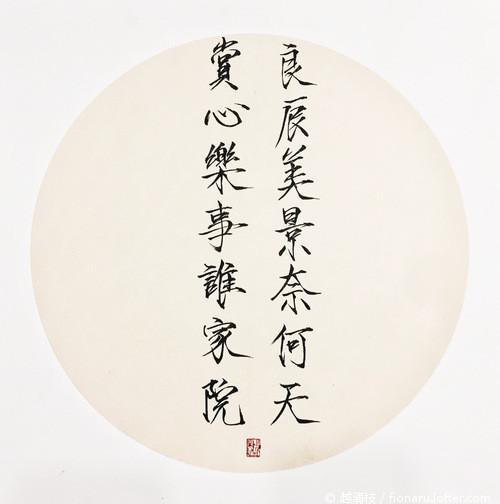 良辰美景奈何天
賞心樂事誰家院
© 越涌枝 / fionaru.lofter.com